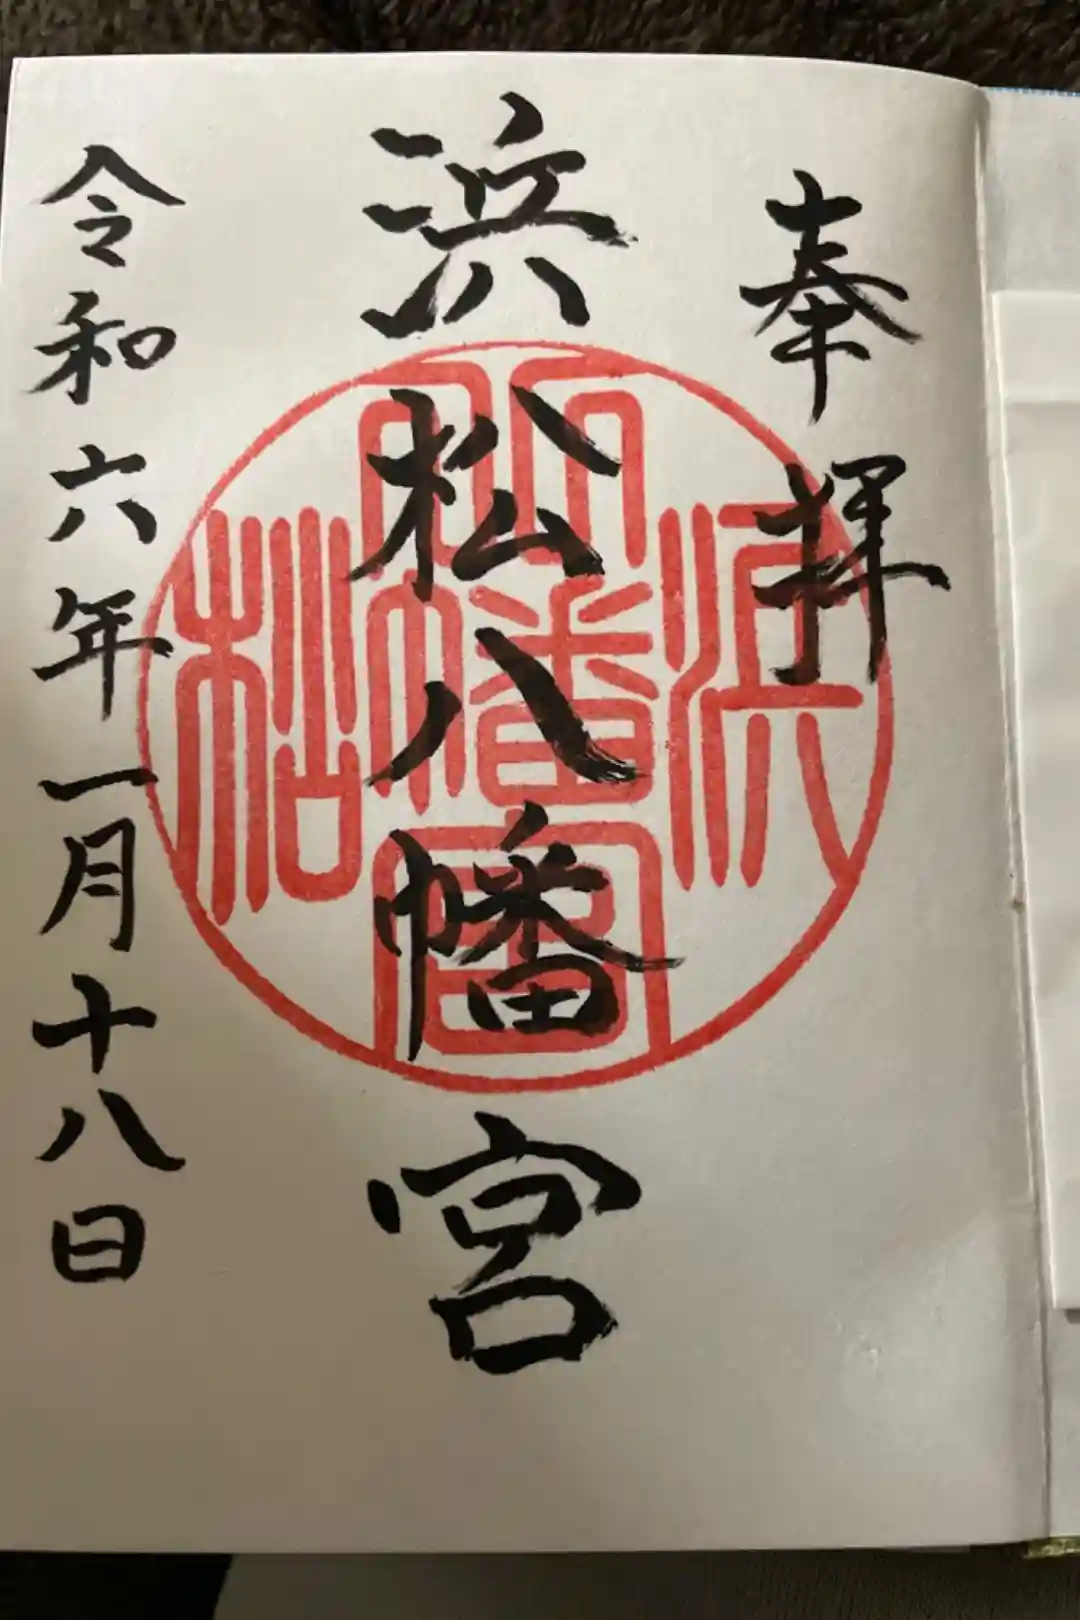 奉拝
浜松八幡宮
令和六年一月十八日
浜松八幡宮